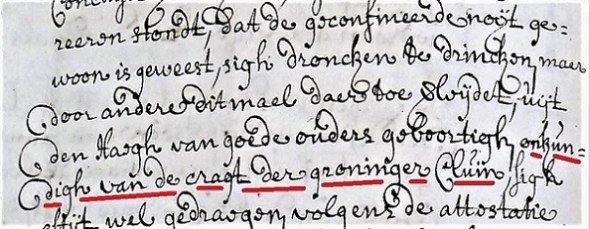 reeren stondt, dat de geconfineerde noÿt ge=
woon is geweest, sigh droncken te drincken, maer
door andere ditmael daer toe ÿt
den Haegh van goede ouders geboortigh, onkun=
digh van de cragt der groninger Cluin, sigh
wel gedraegen, volgens de attestatie